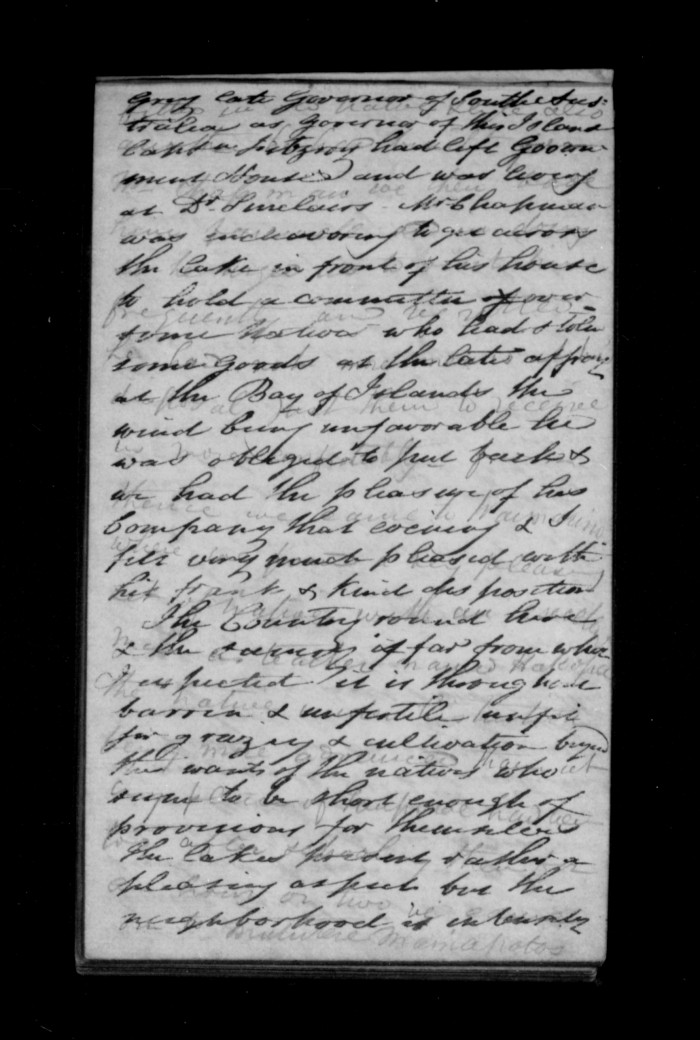 Grey late Governor of South Aus-
tralia as governor of this Island
Captn Fitzroy had left Govern
ment House and was living
at Dr Sinclairs. Mr Chapman
was endeavoring to get across
the lake in front of his house
to hold a committee over
some natives who had stolen
some goods at the late affray
at the Bay of Islands the
wind being unfavorable he
was obliged to put back &
we had the pleasure of his
Company that evening & I
felt very much pleased with
his frank & kind disposition
The Country round here
& the scenery is far from what
I expected it is throughout
barren & unfertile unfit
for grazing & cultivation beyond
the wants of the natives who
seem to be short enough of
provisions for themselves
the lakes present rather a
pleasing aspect but the
neighborhood is intensely